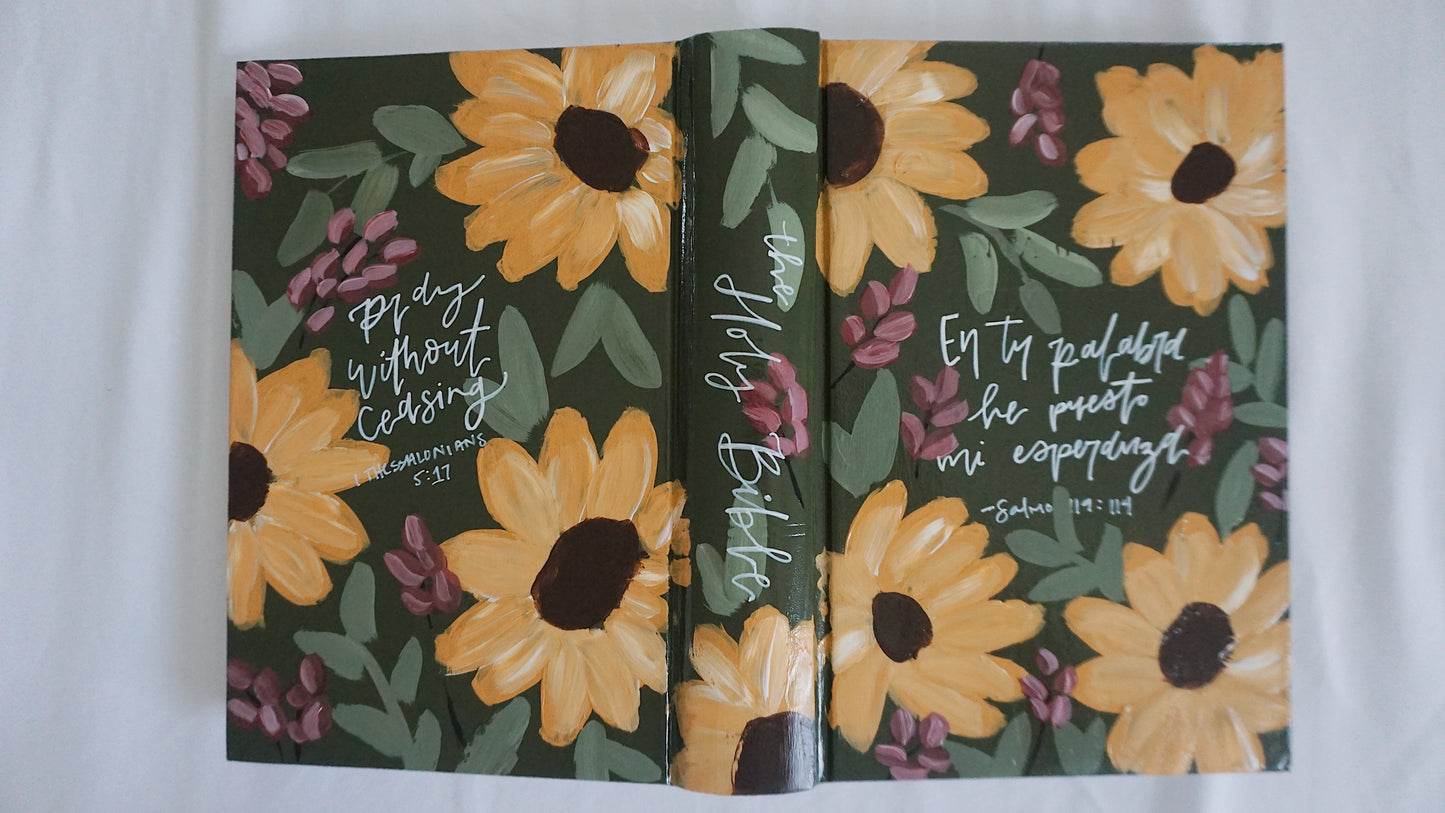 pray
without
ceasing
1 THESSALONIANS
5:17
the Holy Bible
En tu palabra
he puesto
mi esperanza
-Salmo 119:114